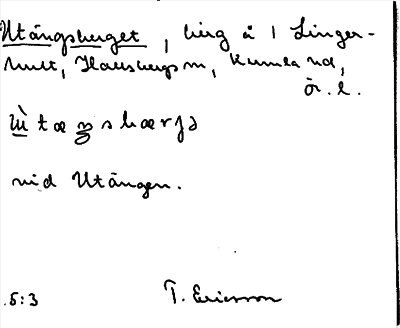 Utängsberget, berg å 1 Linger-
hult, Hallsbergs sn, Kumla hd,
Ör. l.
ùtæŋsbærjə
vid Utängen.
5:3 T. Ericsson